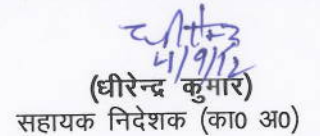 4/9/12
(धीरेन्द्र कुमार)
सहायक निदेशक (का0 अ0)